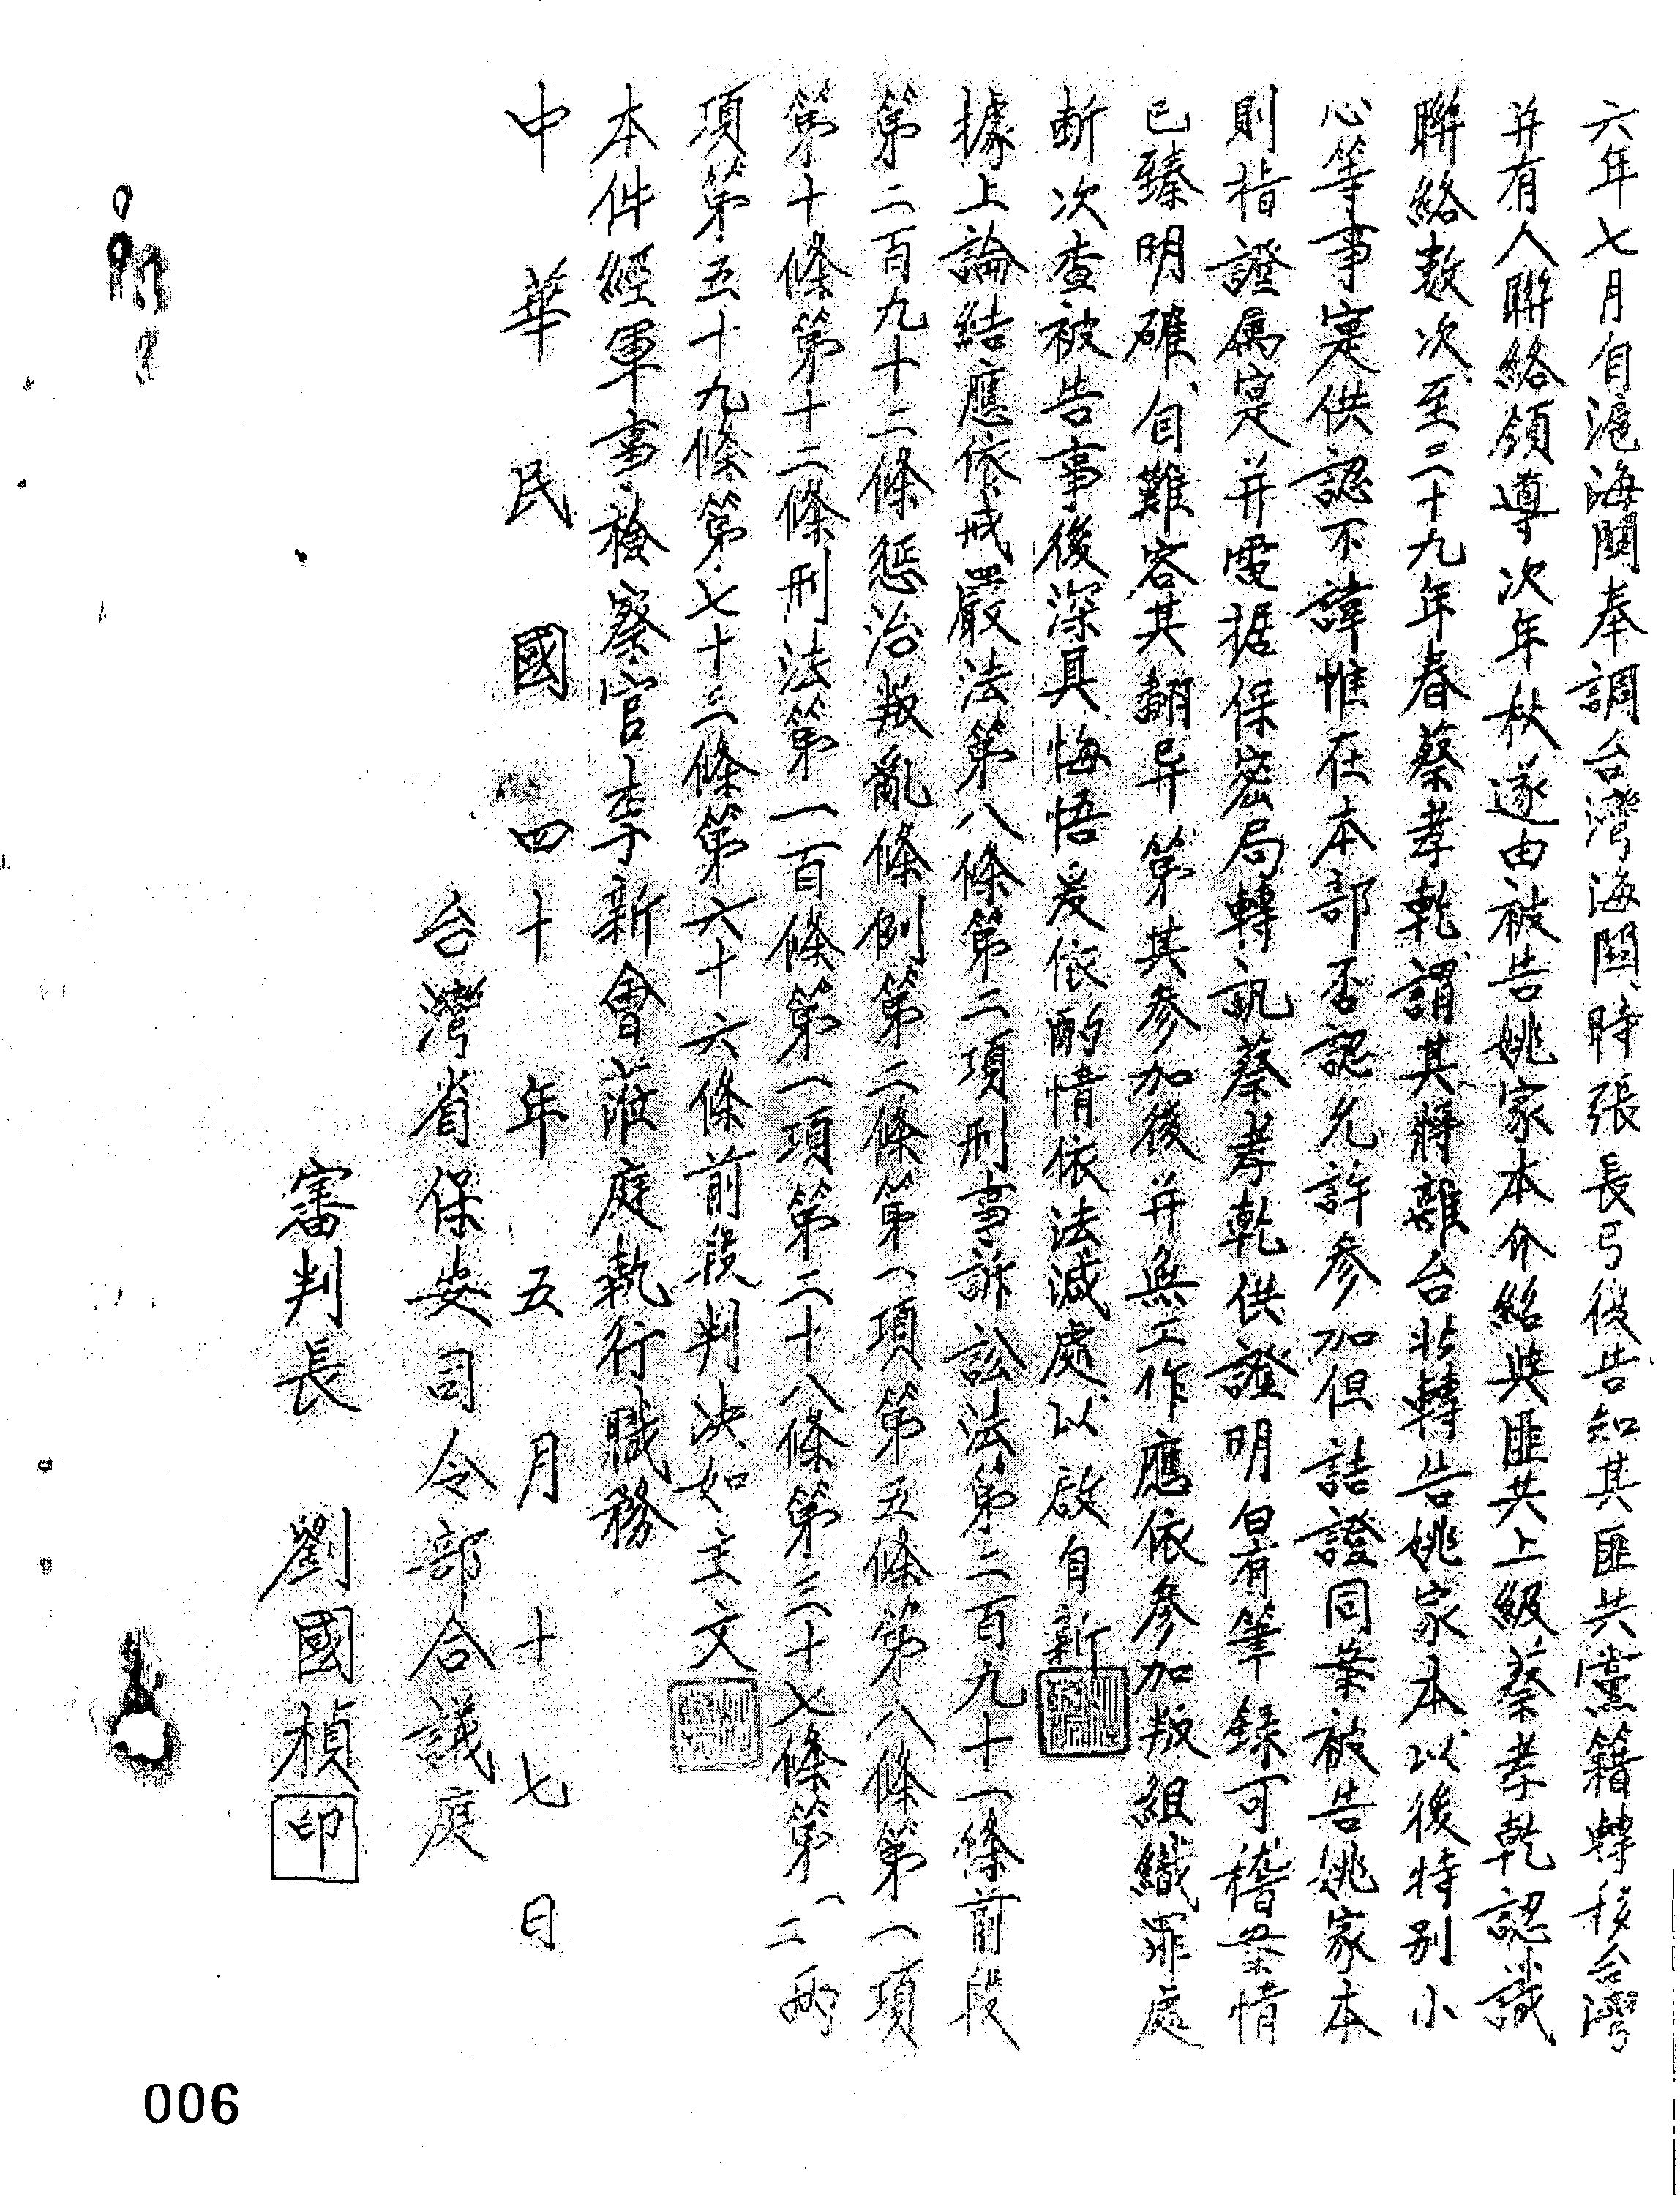 六年七月自滬海關奉調台灣海關時張長弓復告知其匪共黨籍轉移台灣
并有人聯絡領導次年秋遂由被告姚家本介紹與匪共上級蔡孝乾認識
聯絡数次至三十九年春蔡孝乾謂其將離台北轉告姚家本以後特別小
心等事寔供認不諱惟在本部否認允許参加但詰證同案被告姚家本
則指證属寔并電据保密局轉訊蔡孝乾供證明白有筆録可稽案情
已臻明確自難容其翻异第其参加後并無工作應依参加叛組織罪處
断次查被告事後深具悔悟爰依酌情依法减處以啟自新
據上論結應依戒嚴法第八條第二項刑事訴訟法第二百九十一條前段
第二百九十二條惩治叛亂條例第二條第一項第五條第八條第一項
第十條第十二條刑法第一百條第一項第二十八條第三十七條第一二兩
項第五十九條第七十三條第六十六條前段判决如主文
本件經軍事檢察官李新會蒞庭執行職務
中華民國四十年五月十七日
台灣省保安司令部合議庭
審判長 劉國楨 印
006